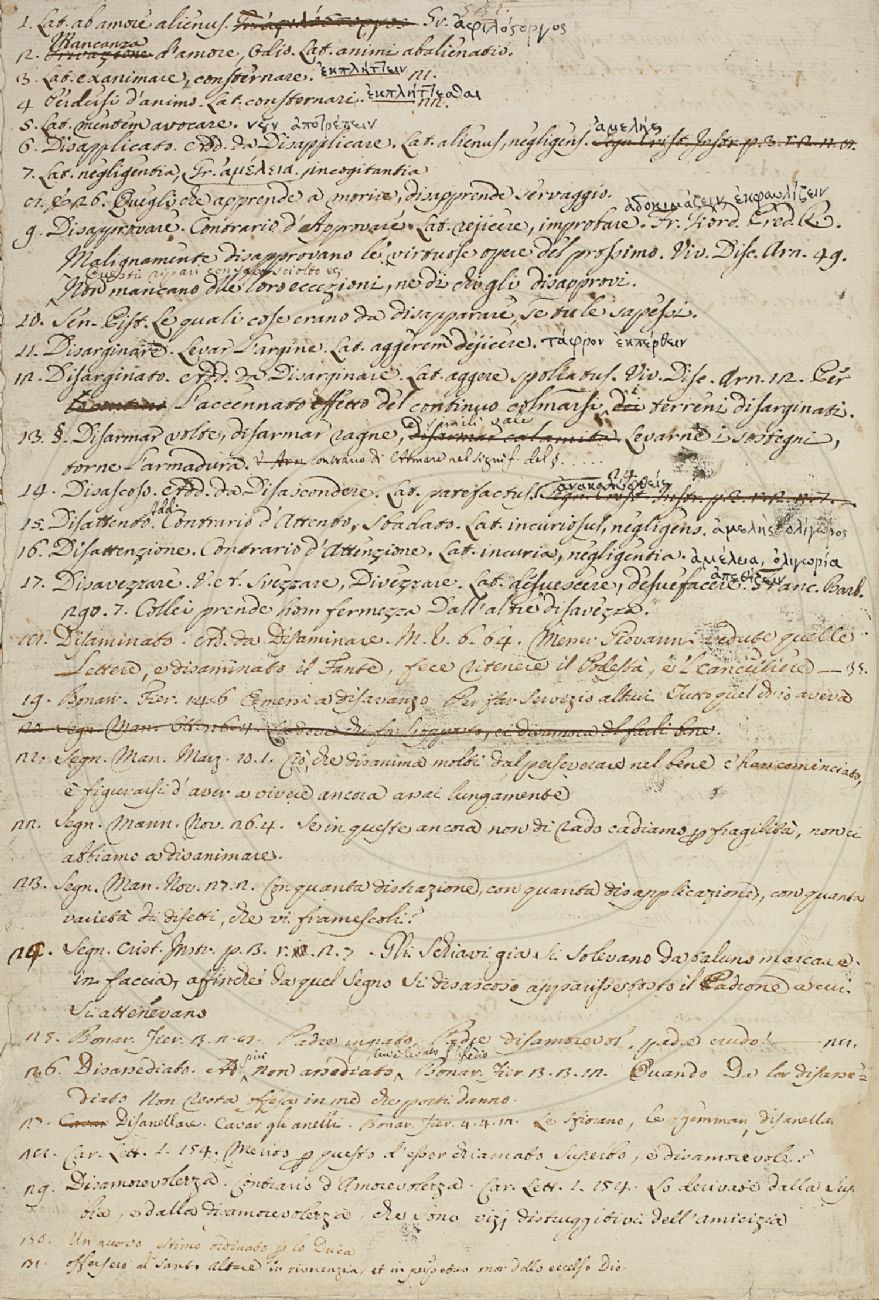 1. Lat. ab amore alienus. Gr. ἀφιλόςοργος
Mancanza
2. Privazione d'amore, Odio. Lat. animi abalienatio.
3. Lat. exanimare, consternare. ἐκπλήττειν
4. Perdersi d'animo. Lat. consternari. ἐκπλήττεσθαι
5. Lat. mentem avocare. νοῦν ἀποτρέπειν
ἀμελής
6. Disapplicato. Add. da Disapplicare. Lat. alienus, negligens. Segn. Crist. Instr. p. 3. r. 12. n. 9.
7. Lat. negligentia, Gr. ἀμέλεια, incogitantia
8. 126. Quegli che apprende a morire, disapprende servaggio.
ἀδοκιμάζειν, ἐκφαυλίζειν
9. Disapprovare. Contrario d'Approvare. Lat. rejicere, improbare. Fr. Giord. Pred. R.
Malignamente disapprovano le virtuose opere del prossimo. Viv. Disc. Arn. 49.
Questi ripari con sasso sciolto ec.
Non mancano delle loro eccezioni, nè di chi gli disapprovi.
10. Sen. Pist. Le quali cose erano da disapparare, se tu le sapessi.
11. Disarginare. Levar l'argine. Lat. aggerem dejicere. τάφρον ἐκπερθειν
12. Disarginato. Add. da Disarginare. Lat. aggere spoliatus. Viv. Disc. Arn. 12. Per
l'accennato effetto del continuo colmarsi, de' terreni disarginati.
e simili vale
13. §. Disarmar volte, disarmar ragne, disarmar calamita, Levarne i sostegni,
torne l'armadura. contrario di Armare nel signif. del §. . . . . .
24
ἀνακαλυφθείς
14. Disascoso. Add. da Disascondere. Lat. patefactus. Segn. Crist. Instr. p. 3. r. 12. n. 7.
Add.
15. Disattento. Contrario d'Attento, Sbadato. Lat. incuriosus, negligens. ἀμελής ὀλίγωρος
16. Disattenzione. Contrario d'Attenzione. Lat. incuria, negligentia. ἀμέλεια, ὀλιγωρία
ἀπεθίζειν
17. Disavezzare. V. e r. Svezzare, Divezzare. Lat. desuescere, desuefacere. Franc. Barb.
290. 7. Collei prende hom fermezza Dall'altre disavezza.
18. Disaminato. Add. da Disaminare. M. V. 6. 64. Messer Giovanni vedute quelle
Lettere, e disaminato il Fante, fece ritenere il Podestà, e 'l cancelliere —
19. Bonar. Fier. 146 E messi a disavanzo Per far servizio altrui Tutto quel ch'io aveva
21. Segn. Man. Marz. 10. 1. Ciò, che disanima molti dal perseverare nel bene c'han cominciato,
è figurarsi d'aver a vivere ancora assai lungamente
22. Segn. Mann. Nov. 26. 4. Se in queste ancora non di rado cadiamo p fragilità, non ci
abbiamo a disanimare.
23. Segn. Man. Nov. 27. 2. Con quanta distrazione, con quanta disapplicazione, con quanta
varietà di difetti, che vi frammescoli?
24. Segn. Crist. Instr. p. 3. r. 12. n. 7. Gli Schiavi già si solevano da taluno marcare
in faccia, affinchè da quel segno si disascoso apparisse tosto il Padrone a cui
si attenevano
25. Bonar. Fier. 3. 2. 9. Padre ingrato, Padre disamorevol', padre crudo!
26. Disassediato. Add. non assediato, Bonar. Fier 3. 3. 12. Quando Da lor disasse=
diato Non resta offesa in me che porti danno.
27. Disanellare. Cavar gli anelli. Bonar. Fier. 4. 4. 12. Le sfiorano, le sgemman, disanellan
28. Car. Lett. 1. 154. Merito p questo d'esser chiamato superbo, e disamorevole?
29. Disamorevolezza. Contrario d'Amorevolezza. Car. Lett. 1. 154. Lo derivate dalla Sup
bia, e dalla disamorevolezza, che sono vizj distruggitivi dell'amicizia
130. Un nuovo estimo ordinato p lo Duca
131.